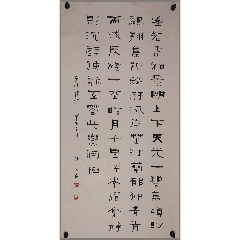 至若春和景明上下天光一碧萬頃沙
鷗翔集錦鱗游泳岸芷汀蘭郁郁青青
而或長煙一空皓月千里浮光躍金靜
影沉璧漁歌互答此樂何極